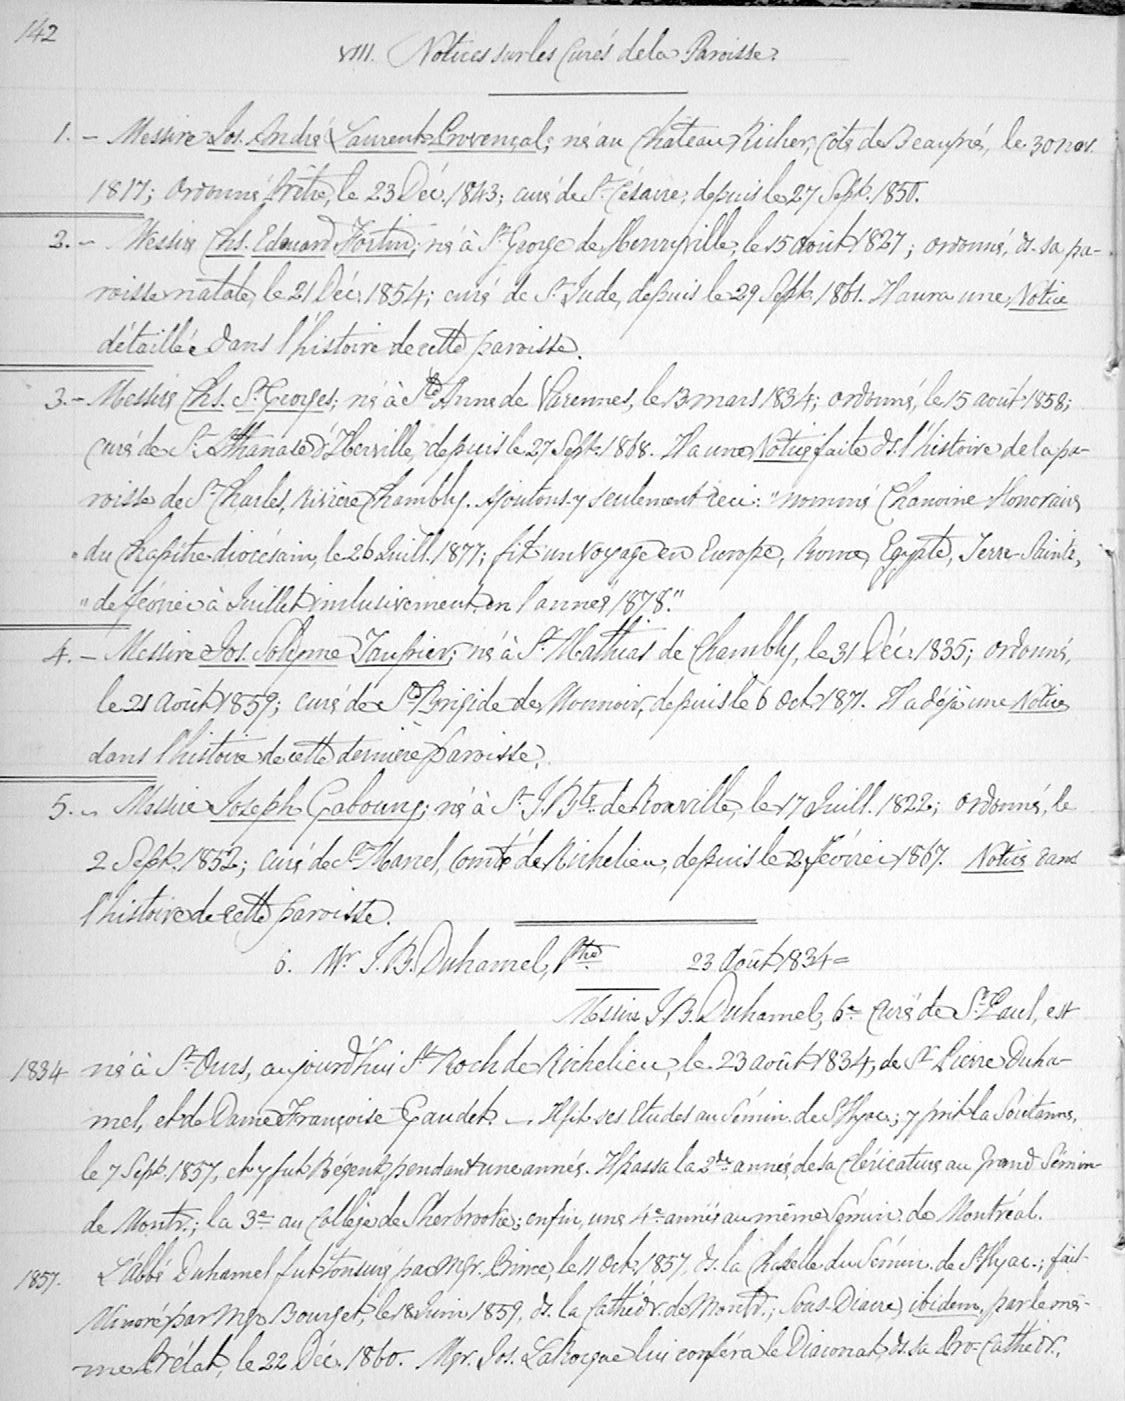 142
VIII. Notices sur les Curés de la Paroisse.
1. – Messire Jos. André Laurent Provençal; né au Château Richer, Côte de Beaupré, le 30 nov.
1817; Ordonné Prêtre, le 23 Déc. 1843; curé de St. Césaire, depuis le 27 Sept. 1850.
2. – Messire Chs. Edouard Fortin; né à St. George de Henryville, le 15 août 1827; ordonné, ds. sa pa-
roisse natale, le 21 Déc. 1854; curé de St. Jude, depuis le 29 Sept. 1861. Il aura une Notice
détaillée dans l'histoire de cette paroisse.
3. – Messire Chs. St. Georges; né à Ste Anne de Varennes, le 13 mars 1834; ordonné, le 15 août 1858;
curé de St. Athanase d'Iberville, depuis le 27 Sept. 1868. Il a une Notice faite ds. l'histoire de la pa-
roisse de St. Charles, Rivière Chambly. Ajoutons-y seulement ceci: "nommé Chanoine Honoraire
" du Chapitre diocésain, le 26 Juill. 1877; fit un voyage en Europe, Rome, Egypte, Terre-Sainte,
" de février à Juillet inclusivement, en l'année 1878."
4. – Messire Jos. Solyme Taupier; né à St. Mathias de Chambly, le 31 Déc. 1835; ordonné,
le 21 Août 1859; curé de Ste Brigide de Monnoir, depuis le 6 Oct. 1871. Il a déjà une Notice
dans l'histoire de cette dernière Paroisse.
5. – Messire Joseph Gaboury; né à St. J. Bte. de Rouville, le 17 Juill. 1822; Ordonné, le
2 Sept. 1852; curé de St. Marcel, Comté de Richelieu, depuis le 2 février 1867. Notice dans
l'histoire de cette paroisse.
6. Mr. J. B. Duhamel, Ptre. 23 Août 1834 =
Messire J. B. Duhamel, 6e Curé de St. Paul, est
1834 né à St. Ours, aujourd'hui St. Roch de Richelieu, le 23 août 1834, de Sr. Pierre Duha-
mel, et de Dame Françoise Gaudet. –. Il fit ses Etudes au Sémin. de St Hyac.; y prit la Soutanne,
le 7 Sept. 1857, et y fut Régent, pendant une année. Il passa la 2de année, de sa Cléricature au Grand Sémin.
de Montr.; la 3e au Collège de Sherbrooke; enfin, une 4e année au même Sémin. de Montréal.
1857. L'Abbé Duhamel fut Tonsuré, par Mgr. Prince, le 11 Oct. 1857, ds. la Chapelle du Sémin. de St Hyac.; fait
Minoré par Mgr Bourget, le 18 Juin 1859, ds. la Cathédr. de Montr.; Sous-Diacre, ibidem, par le mê-
me Prélat, le 22 Déc. 1860. Mgr. Jos. LaRocque lui conféra le Diaconat, ds. sa Pro-Cathédr.,